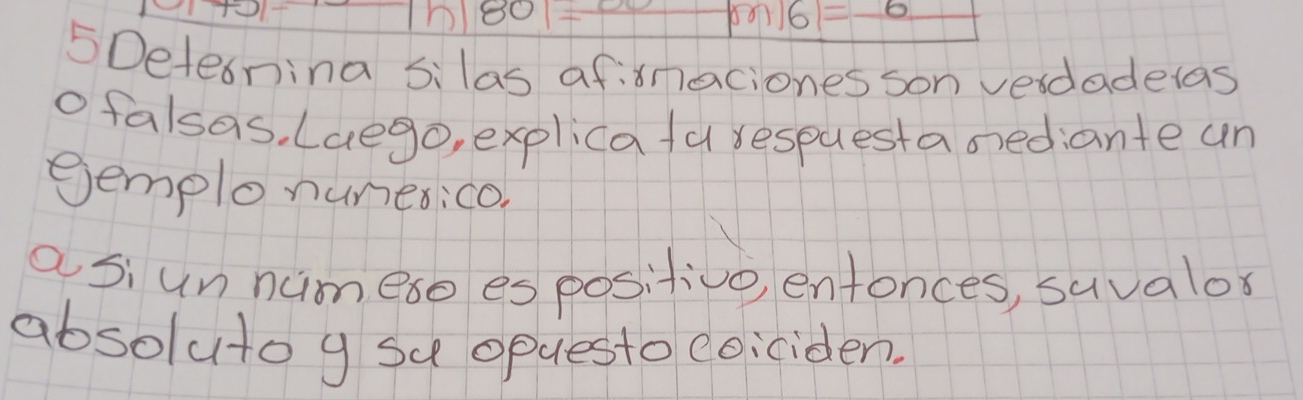 h |80|=
m |6|= 6
5 Determina si las afirmaciones son verdaderas
o falsas. Luego, explica tu respuesta mediante un
ejemplo numerico.
a Si un número es positivo, entonces, su valor
absoluto y su opuesto coiciden.